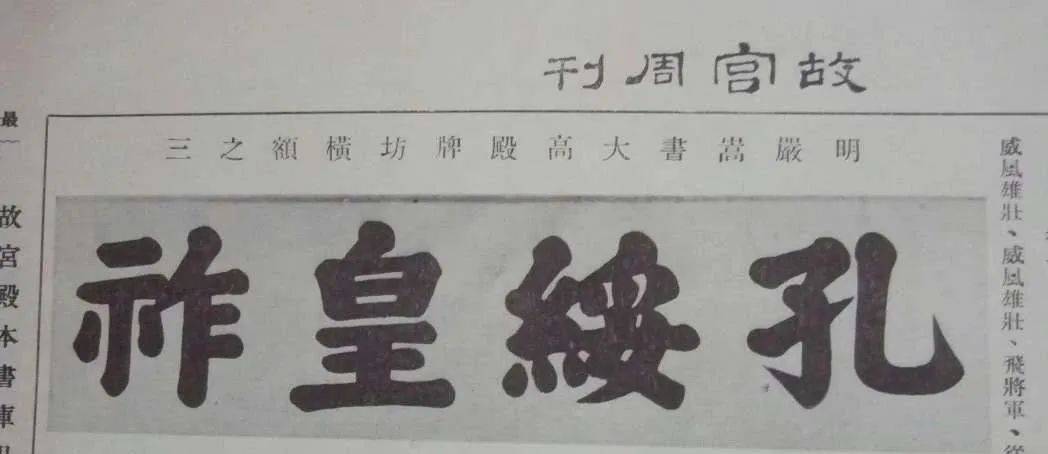 故宮周刊
明嚴嵩書大高殿牌坊橫額之三
孔綏皇祚
威風雄壯、威風雄壯、飛將軍、從
最
故宮殿本書庫